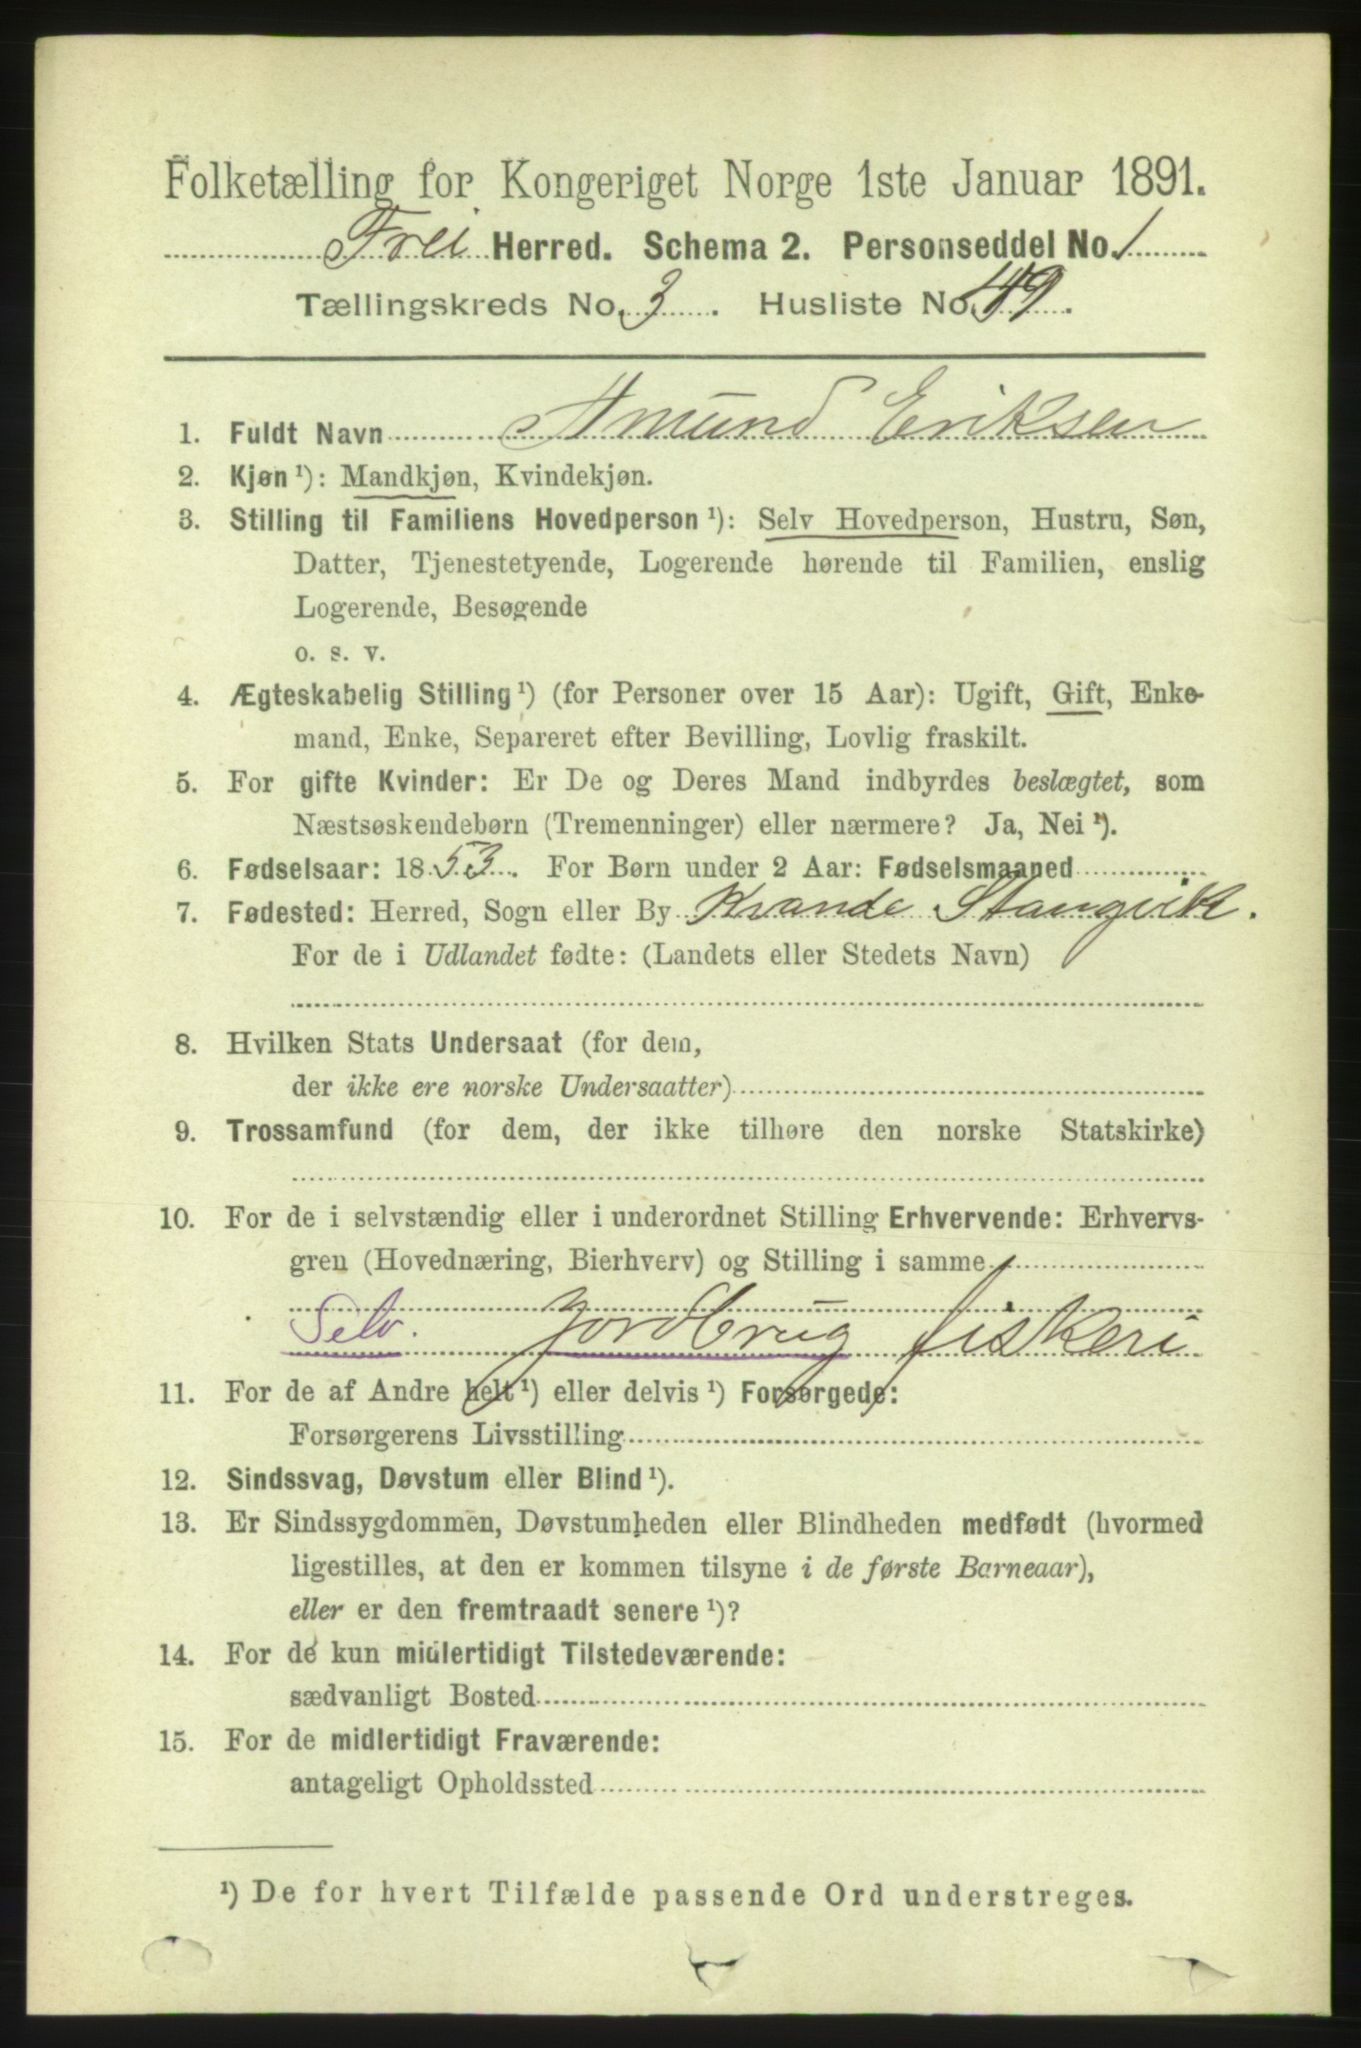 Folketælling for Kongeriget Norge 1ste Januar 1891.
Frei Herred. Schema 2. Personseddel No. 1
Tællingskreds No. 3. Husliste No. 49.
1. Fuldt Navn Amund Eriksen
2. Kjøn ¹): Mandkjøn, Kvindekjøn.
3. Stilling til Familiens Hovedperson ¹): Selv Hovedperson, Hustru, Søn,
Datter, Tjenestetyende, Logerende hørende til Familien, enslig
Logerende, Besøgende
o. s. v.
4. Ægteskabelig Stilling ¹) (for Personer over 15 Aar): Ugift, Gift, Enke-
mand, Enke, Separeret efter Bevilling, Lovlig fraskilt.
5. For gifte Kvinder: Er De og Deres Mand indbyrdes beslægtet, som
Næstsøskendebørn (Tremenninger) eller nærmere? Ja, Nei ¹).
6. Fødselsaar: 1853. For Børn under 2 Aar: Fødselsmaaned
7. Fødested: Herred, Sogn eller By Kvande Stangvik.
For de i Udlandet fødte: (Landets eller Stedets Navn)
8. Hvilken Stats Undersaat (for dem,
der ikke ere norske Undersaatter)
9. Trossamfund (for dem, der ikke tilhøre den norske Statskirke)
10. For de i selvstændig eller i underordnet Stilling Erhvervende: Erhvervs-
gren (Hovednæring, Bierhverv) og Stilling i samme
Selv. Jordbrug fiskeri
11. For de af Andre helt ¹) eller delvis ¹) Forsørgede:
Forsørgerens Livsstilling
12. Sindssvag, Døvstum eller Blind ¹).
13. Er Sindssygdommen, Døvstumheden eller Blindheden medfødt (hvormed
ligestilles, at den er kommen tilsyne i de første Barneaar),
eller er den fremtraadt senere ¹)?
14. For de kun midlertidigt Tilstedeværende:
sædvanligt Bosted
15. For de midlertidigt Fraværende:
antageligt Opholdssted
¹) De for hvert Tilfælde passende Ord understreges.